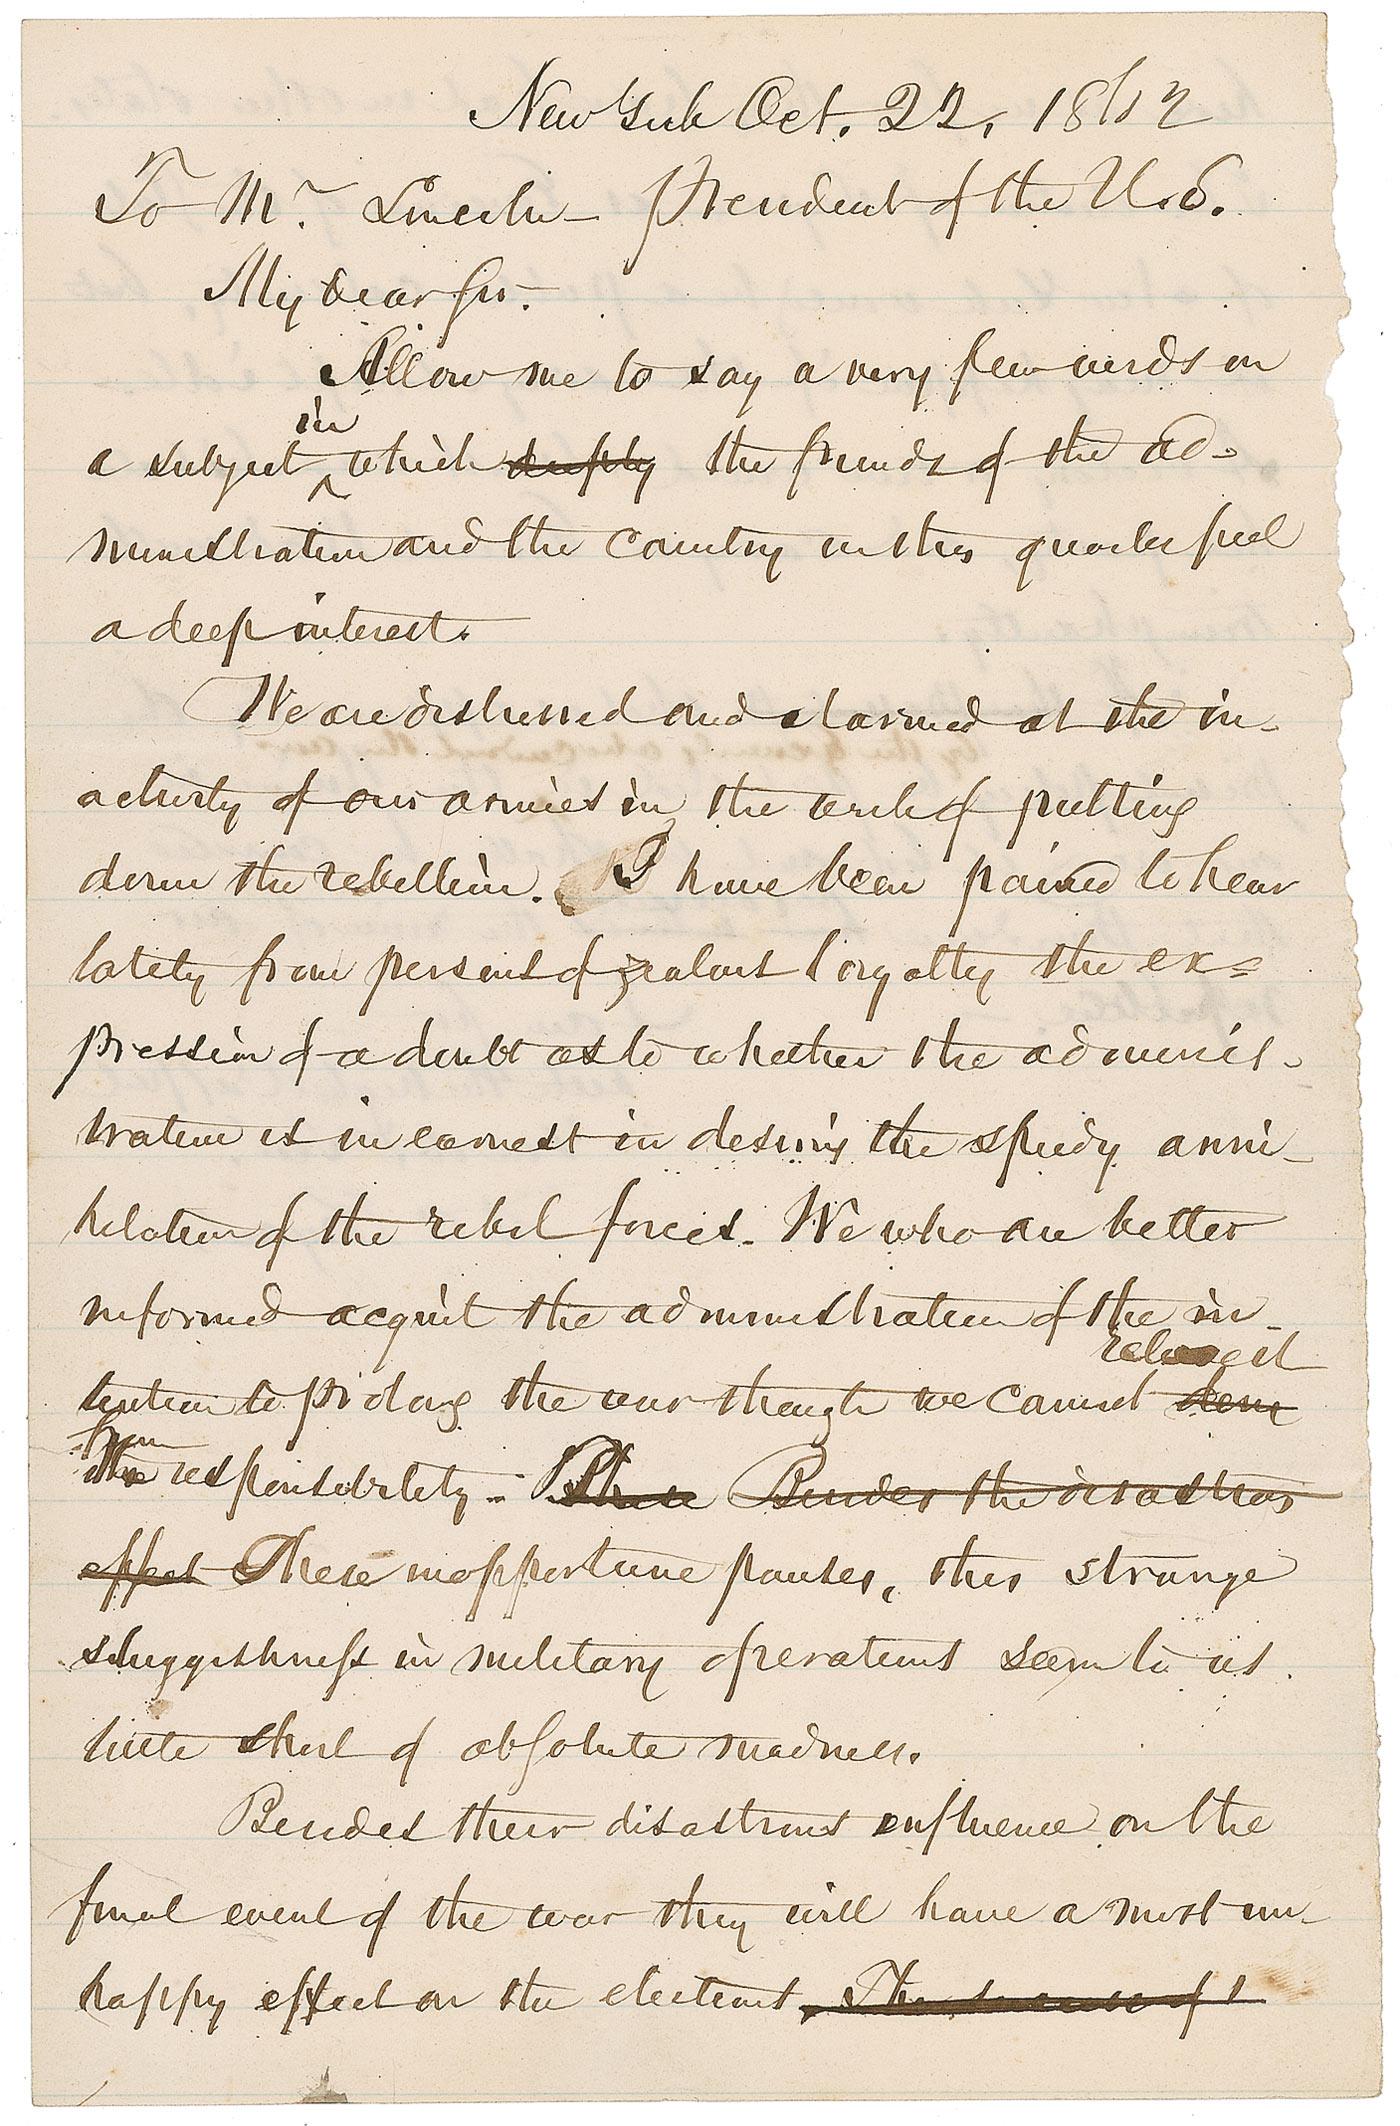 New York Oct. 22, 1862
To Mr. Lincoln – President of the U.S.
My dear Sir.
Allow me to say a very few words on
in
a subject ^ which deeply the friends of the ad-
ministration and the country in this quarter feel
a deep interest.
We are distressed and alarmed at the in-
activity of our armies in the work of putting
down the rebellion. I have been pained to hear
lately from persons of zealous loyalty the ex-
pression of a doubt as to whether the adminis-
tration is in earnest in desiring the speedy anni-
hilation of the rebel forces. We who are better
informed acquit the administration of the in-
tention to prolong the war though we cannot
from
the responsibility. – These Besides the disastrous
effect These inopportune pauses, this strange
sluggishness in military operations seem to us
little short of absolute madness.
Besides their disastrous influence on the
final event of the war they will have a most un-
happy effect on the elections. The